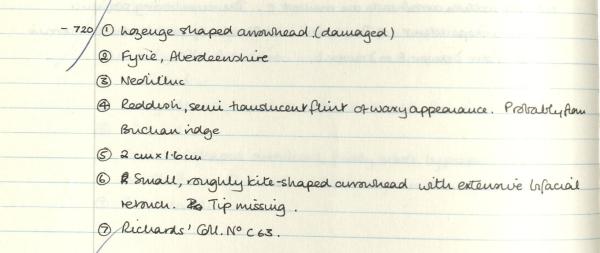 - 720 ① Lozenge shaped arrowhead. (damaged)
② Fyvie, Aberdeenshire
③ Neolithic
④ Reddish, semi translucent flint of waxy appearance. Probably from
Buchan ridge
⑤ 2 cm x 1.6 cm
⑥ Small, roughly kite-shaped arrowhead with extensive bifacial
retouch. Tip missing.
⑦ Richards' Coll. Nº C63.